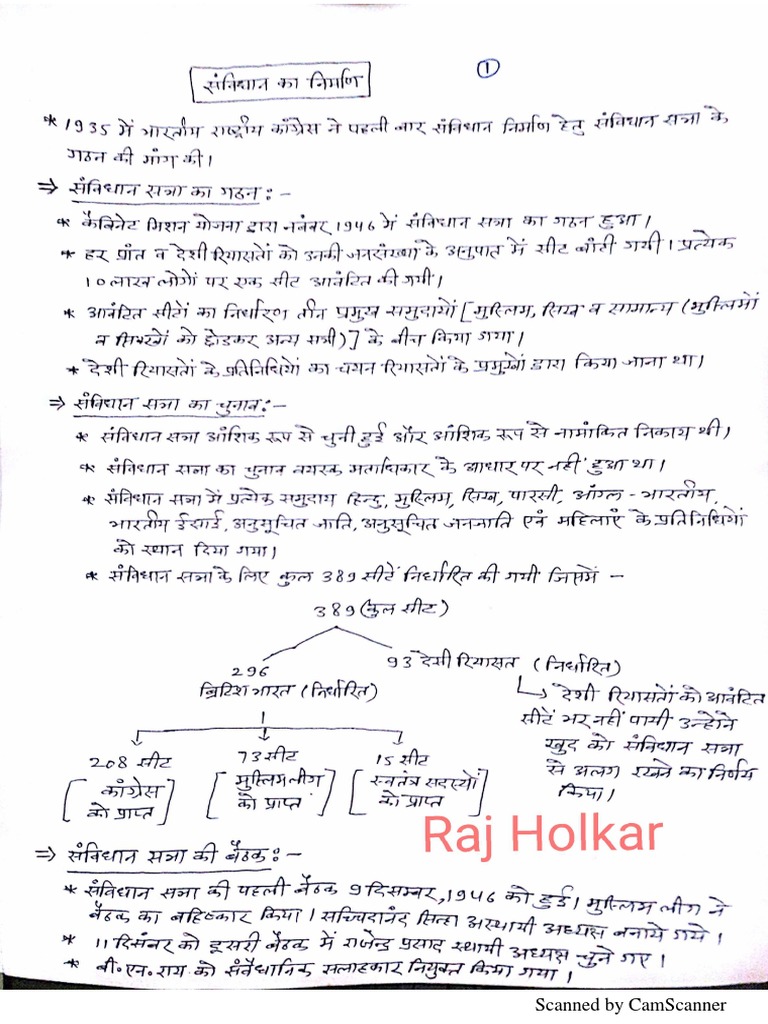 ①
संविधान का निर्माण
* 1935 में भारतीय राष्ट्रीय काँग्रेस ने पहली बार संविधान निर्माण हेतु संविधान सभा के
गठन की मांग की।
⇒ संविधान सभा का गठन :-
* कैबिनेट मिशन योजना द्वारा नवंबर 1946 में संविधान सभा का गठन हुआ।
* हर प्रांत व देशी रियासतों को उनकी जनसंख्या के अनुपात में सीट बाँटी गयी। प्रत्येक
10 लाख लोगों पर एक सीट आवंटित की गयी।
* आवंटित सीटों का निर्धारण तीन प्रमुख समुदायों [मुस्लिम, सिख व सामान्य (मुस्लिमों
व सिक्खों को छोडकर अन्य सभी)] के बीच किया गया।
* देशी रियासतों के प्रतिनिधियों का चयन रियासतों के प्रमुखों द्वारा किया जाना था।
⇒ संविधान सभा का चुनाव :-
* संविधान सभा आंशिक रूप से चुनी हुई और आंशिक रूप से नामांकित निकाय थी।
* संविधान सभा का चुनाव वयस्क मताधिकार के आधार पर नहीं हुआ था।
* संविधान सभा में प्रत्येक समुदाय हिन्दु, मुस्लिम, सिख, पारसी, आंग्ल - भारतीय,
भारतीय ईसाई, अनुसूचित जाति, अनुसूचित जनजाति एवं महिलाएं के प्रतिनिधियों
को स्थान दिया गया।
* संविधान सभा के लिए कुल 389 सीटें निर्धारित की गयी जिसमें -
389 (कुल सीट)
296
ब्रिटिश भारत (निर्धारित)
93 देशी रियासत (निर्धारित)
↳ देशी रियासतों को आवंटित
सीटें भर नहीं पायी उन्होंने
खुद को संविधान सभा
से अलग रखने का निर्णय
किया।
208 सीट 73 सीट 15 सीट
[काँग्रेस को प्राप्त] [मुस्लिम लीग को प्राप्त] [स्वतंत्र सदस्यों को प्राप्त]
Raj Holkar
⇒ संविधान सभा की बैठक :-
* संविधान सभा की पहली बैठक 9 दिसम्बर, 1946 को हुई। मुस्लिम लीग ने
बैठक का बहिष्कार किया। सच्चिदानंद सिन्हा अस्थायी अध्यक्ष बनाये गये।
* 11 दिसंबर को दूसरी बैठक में राजेन्द्र प्रसाद स्थायी अध्यक्ष चुने गए।
* बी. एन. राय को संवैधानिक सलाहकार नियुक्त किया गया।
Scanned by CamScanner